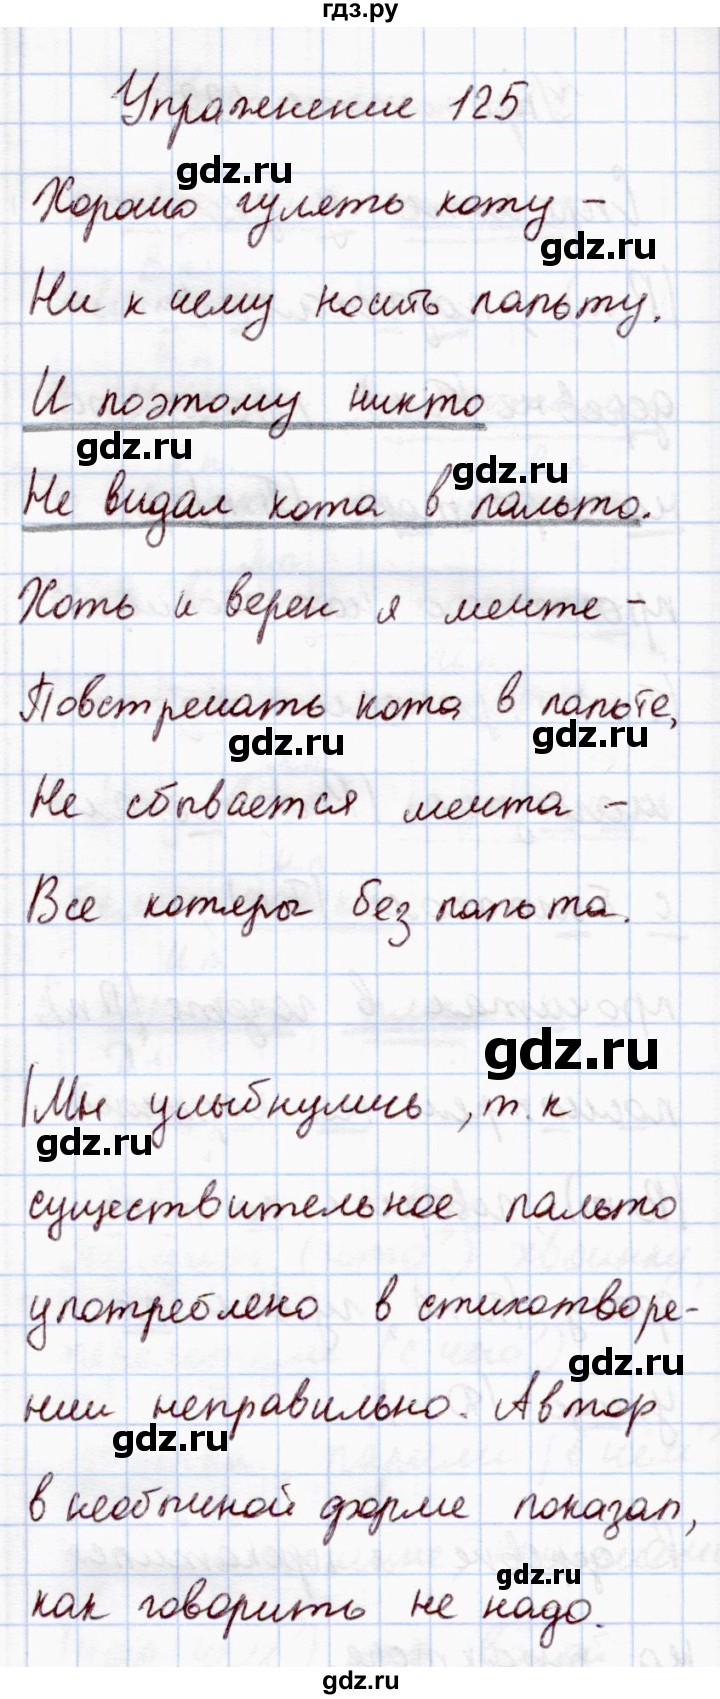 гдз.ру
Упражнение 125
gdz.ru
Хорошо гулять коту –
gdz.ru
Ни к чему носить пальту.
И поэтому никто
gdz.ru
gdz.ru
Не видал кота в пальто.
Хоть и верен я мечте –
Повстречать кота в пальте,
gdz.ru
gdz.ru
Не сбывается мечта –
Все котяры без пальта.
gdz.ru
Мы улыбнулись, т.к
gdz.ru
существительное пальто
употреблено в стихотворе-
gdz.ru
нии неправильно. Автор
gdz.ru
в необычной форме показал,
gdz.ru
как говорить не надо.
gdz.ru